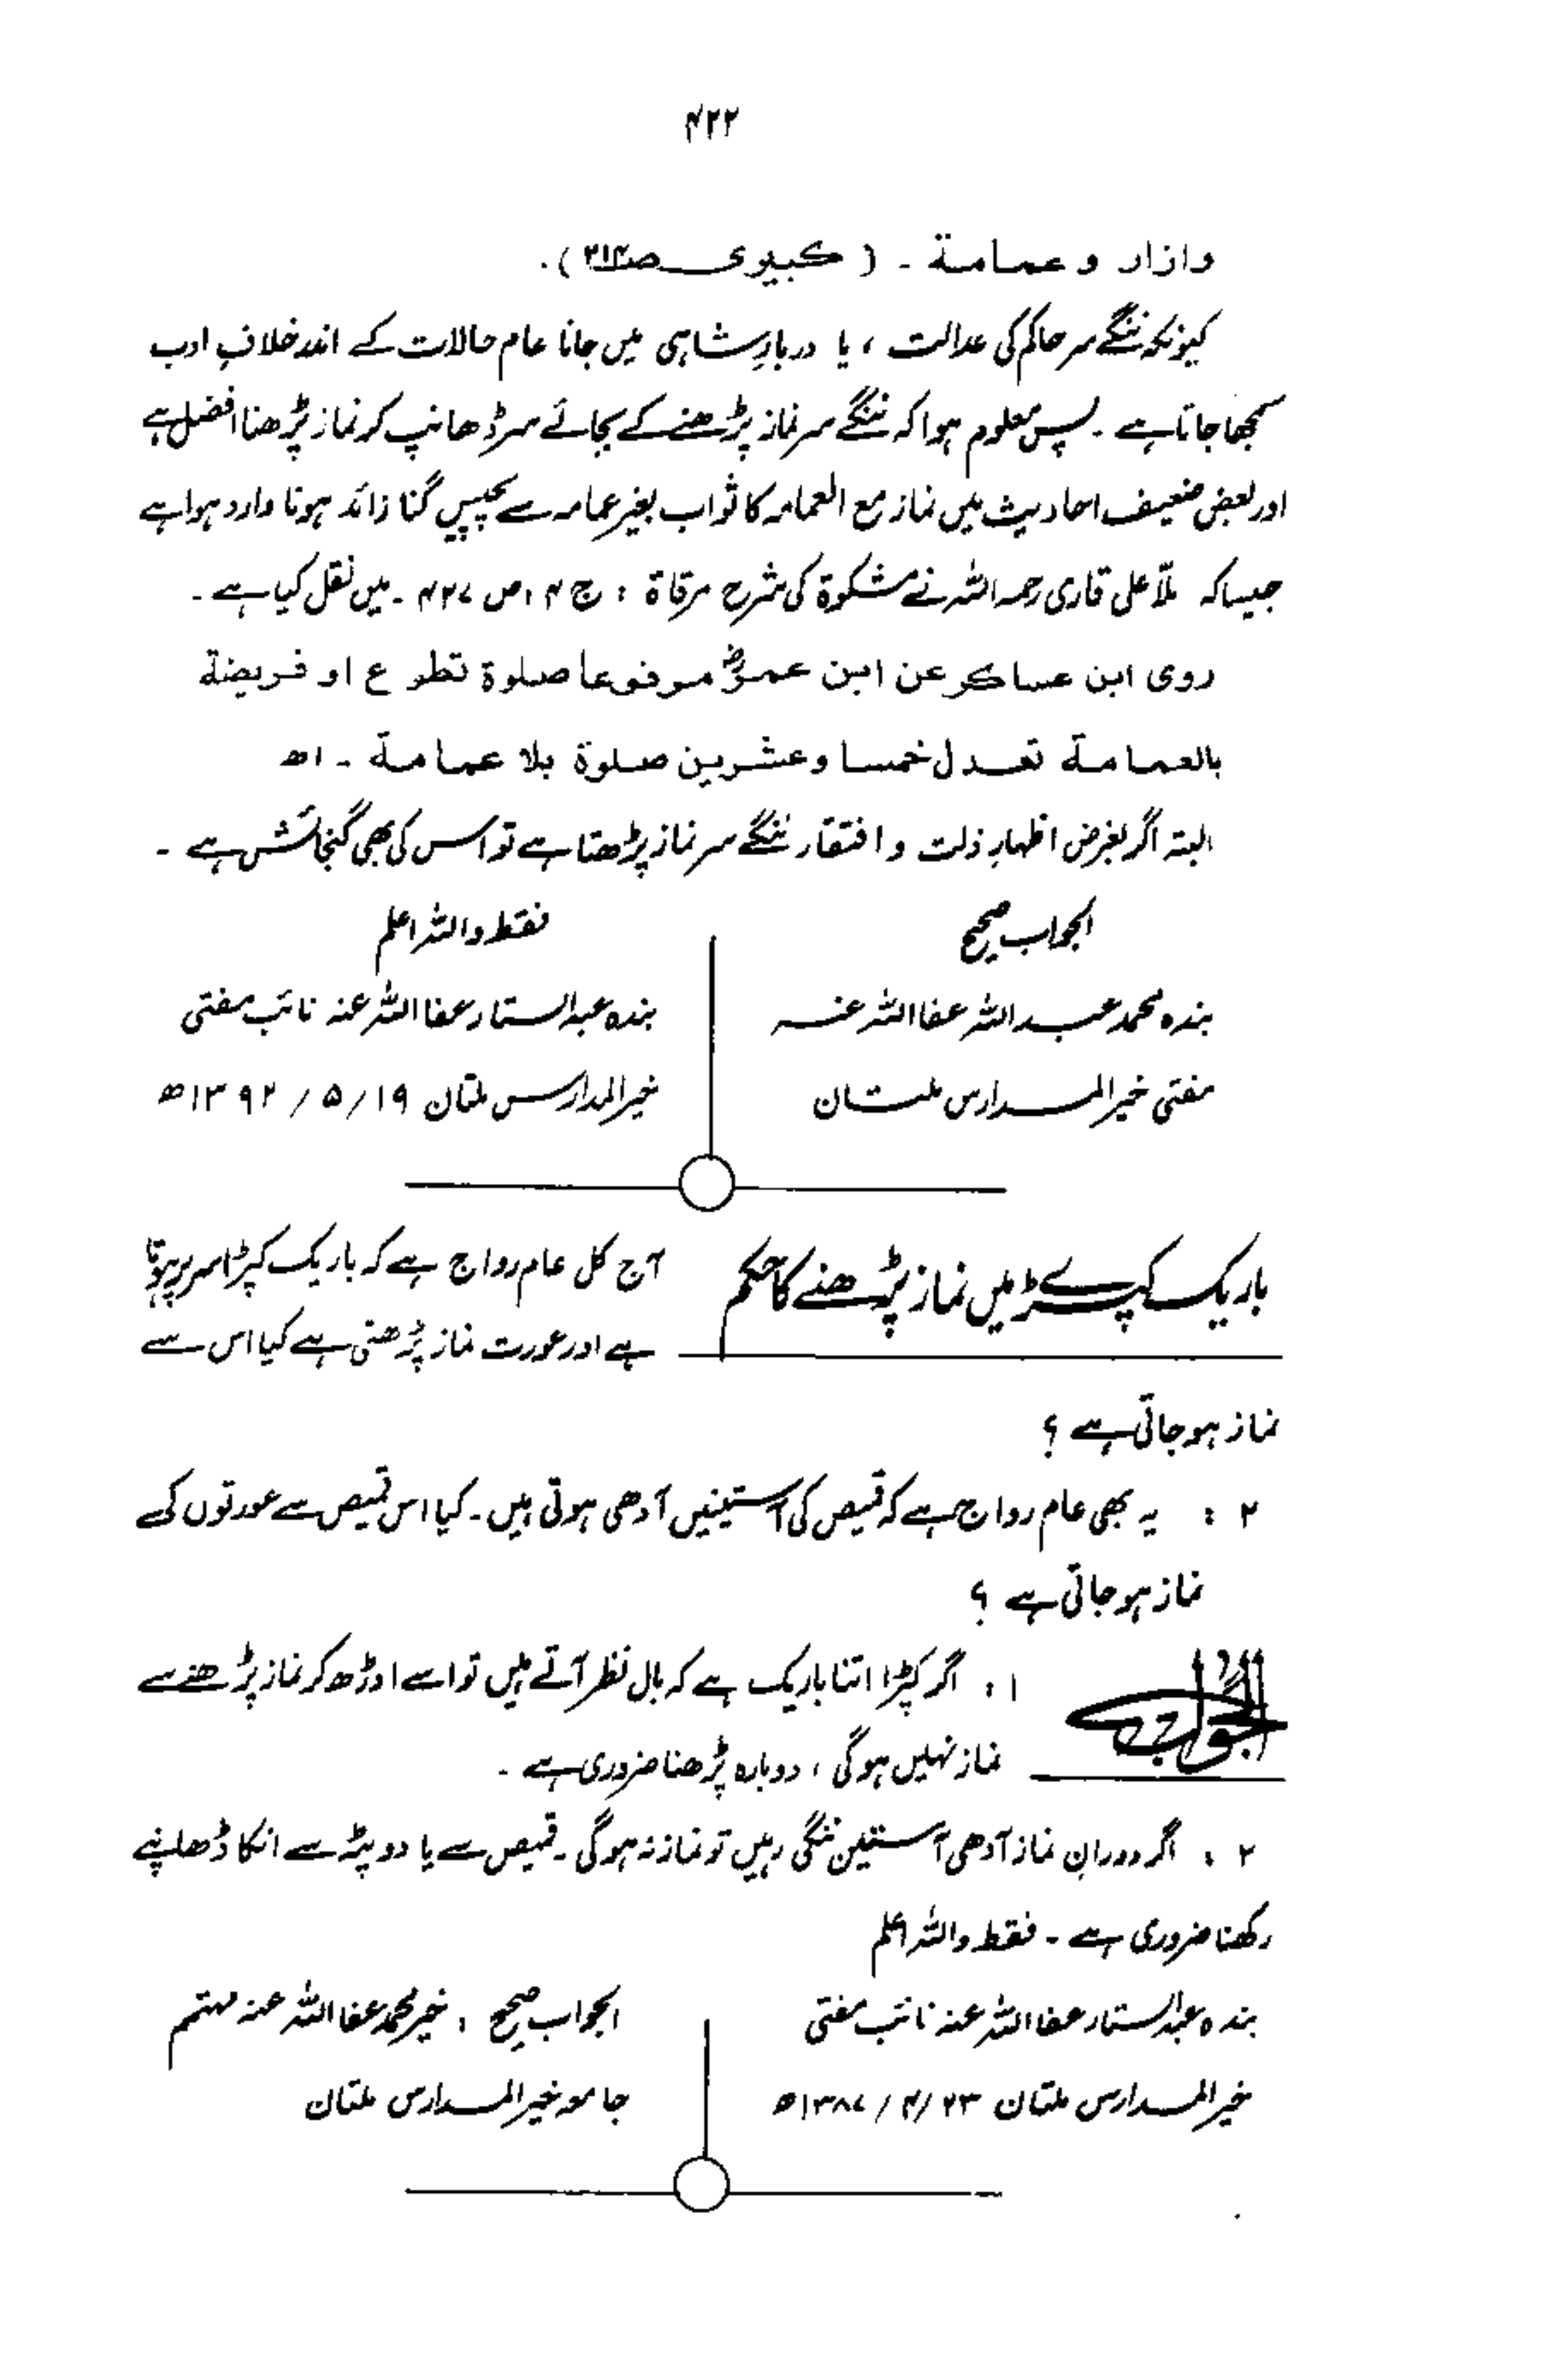 ۴۲۲
وازار وعمامة ـ (کبیری ص۲۱۴).
کیونکہ ننگے سر حاکم کی عدالت ، یا دربارِ شاہی میں جانا عام حالات کے اندر خلافِ ادب
سمجھا جاتا ہے ۔ پس معلوم ہوا کہ ننگے سر نماز پڑھنے کے بجائے سر ڈھانپ کر نماز پڑھنا افضل ہے
اور بعض ضعیف احادیث میں نماز مع العمامہ کا ثواب بغیر عمامہ سے پچیس گنا زائد ہونا وارد ہوا ہے
جیسا کہ ملّا علی قاری رحمہ اللہ نے مشکوٰۃ کی شرح مرقاۃ ؛ ج ۴ ، ص ۴۲۷ ۔ میں نقل کیا ہے ۔
روی ابن عساکر عن ابن عمرؓ مرفوعا صلوة تطوع او فریضة
بالعمامة تعدل خمسا وعشرین صلوة بلا عمامة ـ اھ
البتہ اگر بغرض اظہارِ ذلت و افتقار ننگے سر نماز پڑھتا ہے تو اس کی بھی گنجائش ہے ۔
الجواب صحیح
بندہ محمد عبد اللہ عفا اللہ عنہ
مفتی خیر المدارس ملتان
فقط واللہ اعلم
بندہ عبدالستار عفا اللہ عنہ نائب مفتی
خیر المدارس ملتان ۱۹/ ۵/ ۱۳۹۲ھ
باریک کپڑے میں نماز پڑھنے کا حکم
آج کل عام رواج ہے کہ باریک کپڑا سر پر ہوتا
ہے اور عورت نماز پڑھتی ہے کیا اس سے
نماز ہو جاتی ہے ؟
۲ : یہ بھی عام رواج ہے کہ قمیص کی آستینیں آدھی ہوتی ہیں ۔ کیا اس قمیص سے عورتوں کی
نماز ہو جاتی ہے ؟
الجواب
۱ : اگر کپڑا اتنا باریک ہے کہ بال نظر آتے ہیں تو اسے اوڑھ کر نماز پڑھنے سے
نماز نہیں ہوگی ، دوبارہ پڑھنا ضروری ہے ۔
۲ : اگر دورانِ نماز آدھی آستین ننگی رہیں تو نماز نہ ہوگی ۔ قمیص سے یا دوپٹہ سے انکا ڈھانپے
رکھنا ضروری ہے ۔ فقط واللہ اعلم
بندہ عبدالستار عفا اللہ عنہ نائب مفتی
خیر المدارس ملتان ۲۳/ ۴/ ۱۳۸۷ھ
الجواب صحیح ، خیر محمد عفا اللہ عنہ مہتمم
جامعہ خیر المدارس ملتان